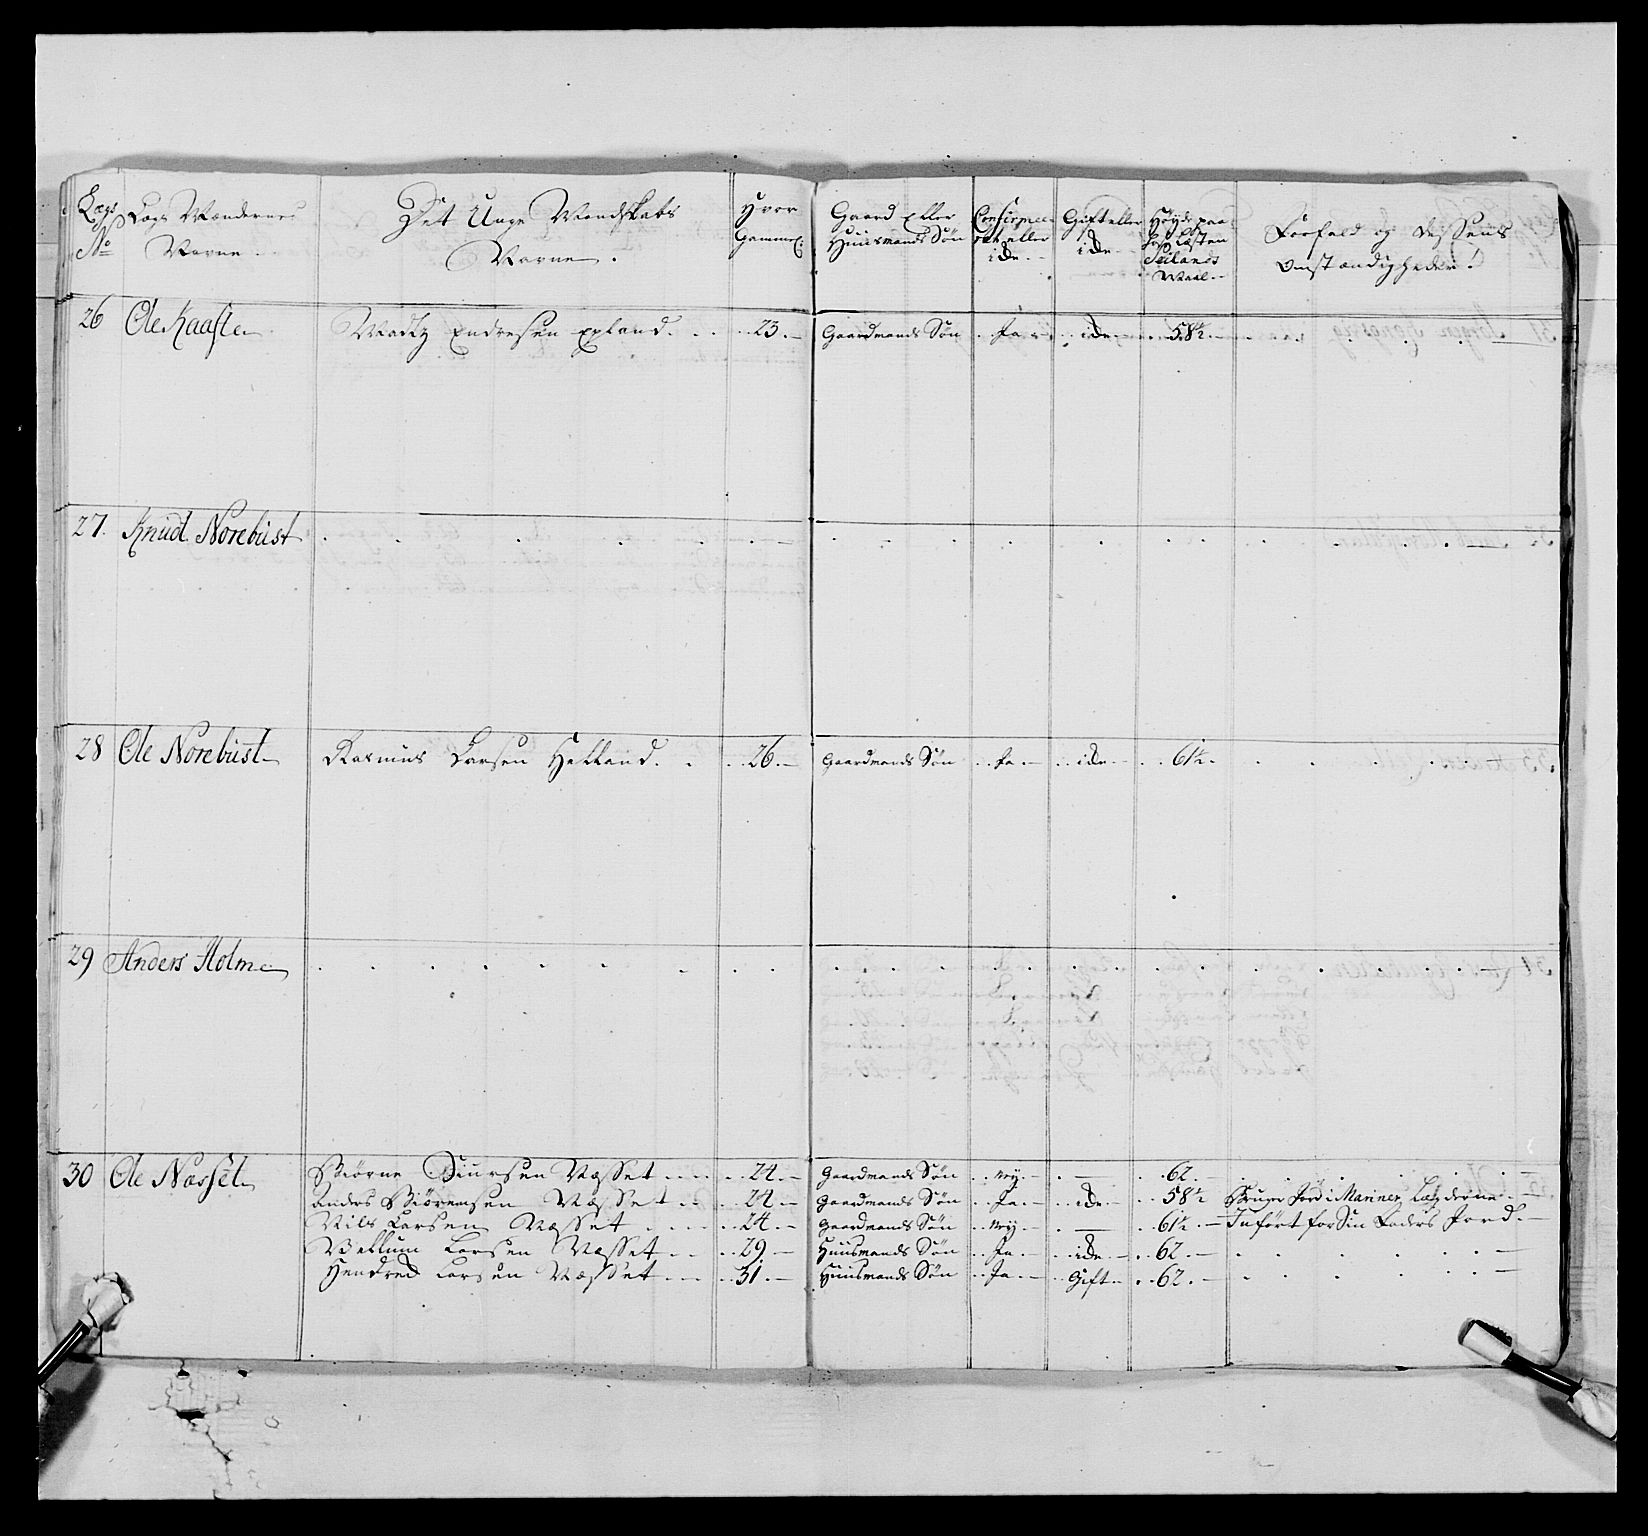 Lægs No
Lægs Mændernes Navne
Det Unge Mandskabs Navne.
Hvor Gammel:
Gaard Eller Huusmands Søn
Confirmeeret eller ide
Gift eller ide
Høyde paa Seilands Maal
Forfald og dessens omstændigheder!
26 Ole Kaaste Endresen . . 23. Gaardmands Søn . Ja . . ide . . 58½
27. Knud Norebust
28 Ole Norebust Rasmus Larsen Helland. . . 26. Gaardmands Søn . . Ja . . ide . . 61½.
29 Anders Holme
30 Ole Næsset Biørne Siursen Næsset . . . 24. Gaardmands Søn . . Ney . . — . 62.
Anders Biørensen Næsset . . 24. Gaardmands Søn . . Ja . . ide . . 58½ Bruger Jord i Marinen
Nils Larsen Næsset . . . 24. Gaardmands Søn . . Ney . . — . . 61½ Indført for Sin Faders Jord.
Vellum Larsen Næsset . . 29 Huusmands Søn . . Ja . . ide . . 62.
Hendrec Larsen Næsset . . 31. Huusmands Søn . . Ja . . Gift . . 62.